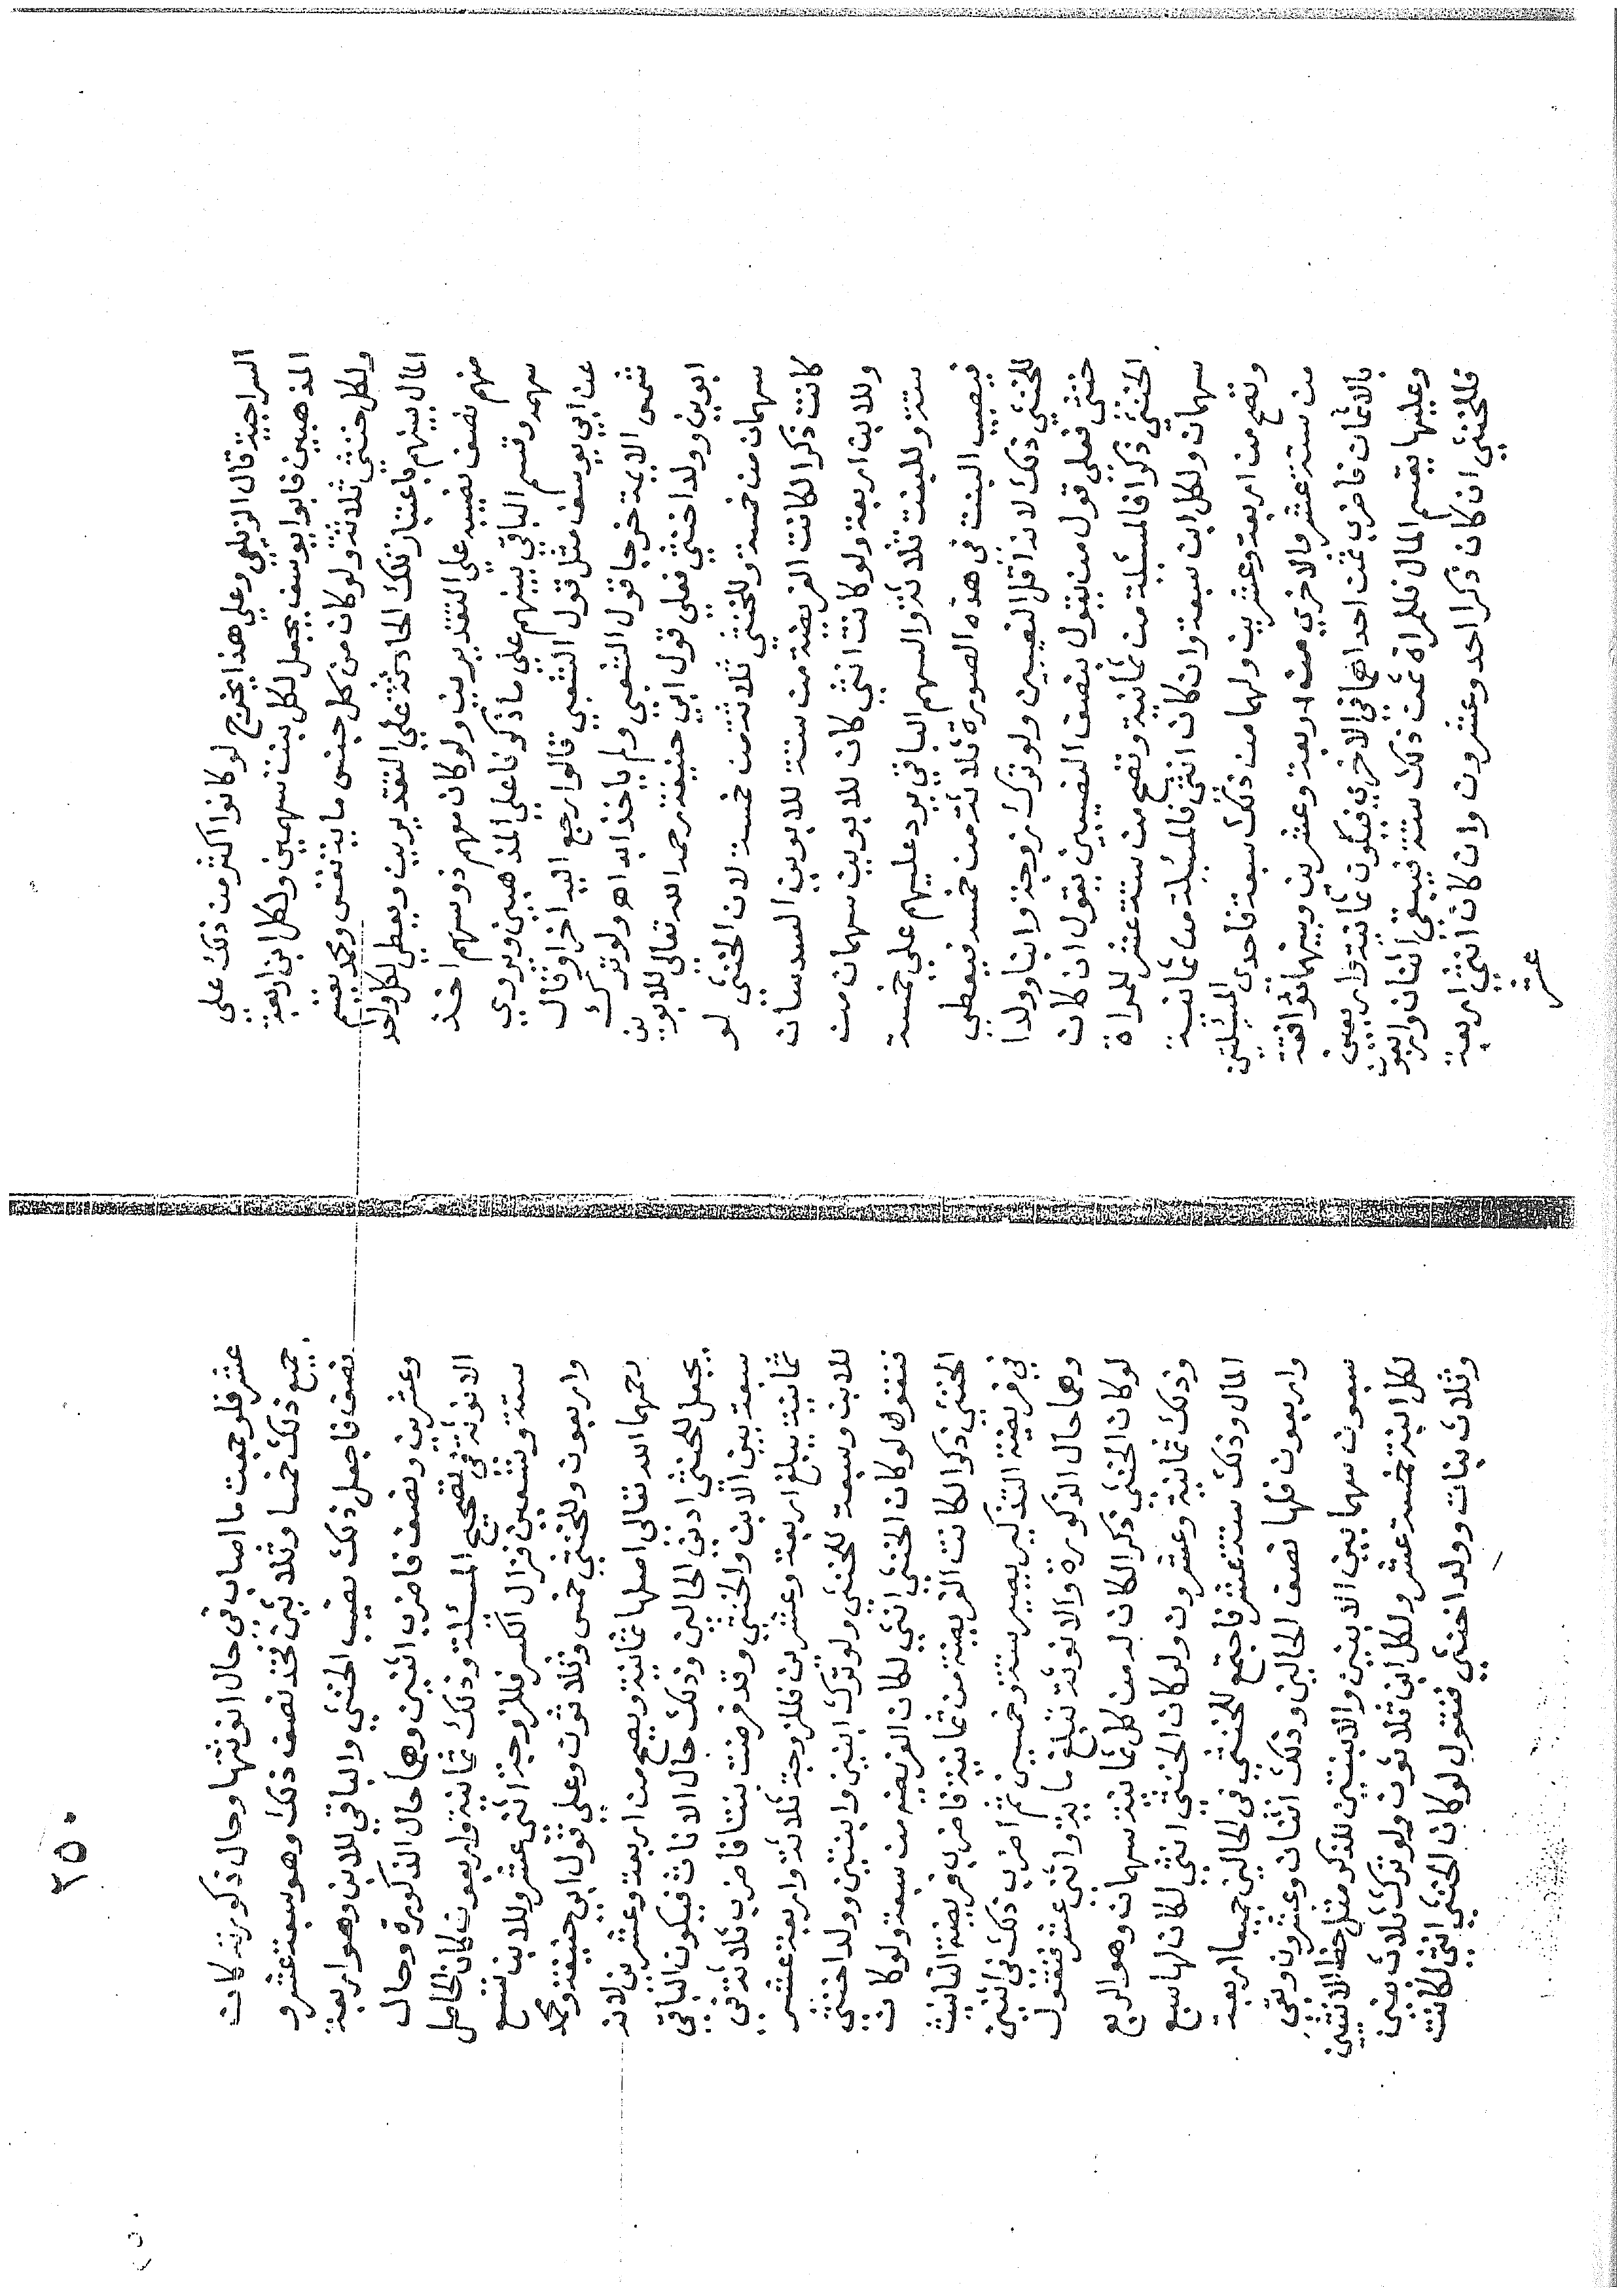 السراجية قال الزيلعي وعلي هذا يخرج لو كانوا اكثر من ذلك علي
المذهبين فابو يوسف يجعل لكل بنت سهمين ولكل ابن اربعة
ولكل خنثي ثلاثة ولو كان من كل جنس ما يتفق ومحمد يقسم
المال بينهم باعتبار تلك الحادثة علي التقديرين ويعطي لكل واحد
منهم نصف نصيبه علي التقديرين ولو كان معهم ذو سهم اخذ
سهمه وقسم الباقي بينهم علي ما ذكرنا علي المذهبين ويروي
عن ابي يوسف مثل قول الشعبي قالوا رجع اليه اخرا وقال
شمس الايمة خرجا قول الشعبي ولم ياخذا به اهـ ولو ترك
ابوين وولدا خنثي فعلي قول ابي حنيفة رحمه الله تعالي للابوين
سهمان من خمسة وللخنثي ثلاثة من خمسة لان الخنثي لو
كانت ذكرا لكانت الفريضة من ستة للابوين السدسان
وللابن اربعة ولو كانت انثي كان للابوين سهمان من
ستة وللبنت ثلاثة والسهم الباقي يرد عليهم علي خمسة
فنصيب البنت في هذه الصورة ثلاثة من خمسة فيعطي
للخنثي ذلك لانه اقل النصيبين ولو ترك زوجة وابنا وولدا
خنثي فعلي قول من يقول بنصف النصيبين يقول ان كان
الخنثي ذكرا فالمسئلة من ثمانية وتصح من ستة عشر للمراة
سهمان ولكل ابن سبعة وان كان انثي فالمسئلة من ثمانية
وتصح من اربعة وعشرين ولهما من ذلك سبعة فاحدى المسئلتين
من ستة عشر والاخري من اربعة وعشرين وبينهما توافقة
بالاثمان فاضرب ثمن احداهما في الاخري فيكون ثمانية واربعين
وعليها يقسم المال فللمراة ثمن ذلك ستة فيبقي اثنان واربعون
فللخنثي ان كان ذكرا احد وعشرون وان كان انثي اربعة
عشر
٢٥٠
عشر فلو جمعت ما اصاب في حال انوثتها وحال ذكورته كان
جميع ذلك خمسا وثلاثين تخذ نصف ذلك وهو سبعة عشر و
نصف فاجعل ذلك نصيب الخنثي والباقي للابن وهو اربعة
وعشرين ونصف فاضرب اثنين وهما حال الذكورة وحال
الانوثة في تصحيح المسئلة وذلك ثمانية واربعون لكان الحاصل
ستة وتسعين فزال الكسر فللزوجة اثني عشر وللابن تسع
واربعون وللخنثي خمس وثلاثون وعلي قول ابي حنيفة ومحمد
رحمهما الله تعالي اصلها ثمانية ويصح من اربعة وعشرين لانه
يجعل للخنثي ادني الحالين وذلك حال الاناث فيكون الباقي
سبعة بين الابن والخنثي وقد فرضت بنتا فاضرب ثلاثة في
ثمانية يبلغ اربعة وعشرين فللزوجة ثلاثة واربعة عشر
للابن وسبعة للخنثي ولو ترك ابنين وابنتين وولدا خنثي
فنقول لو كان الخنثي انثي لكان الفريضة من سبعة ولو كان
الخنثي ذكرا لكانت الفريضة من ثمانية فاضرب فريضة التانيث
في فريضة التذكير يصير ستة وخمسين ثم اضرب ذلك في اثنين
وهما حال الذكورة والانوثة تبلغ ماية واثني عشر فنقول
لو كان الخنثي ذكرا لكان له من كل ثمانية سهمان وهو الربع
وذلك ثمانية وعشرون ولو كان الخنثي انثي لكان لها سبع
المال وذلك ستة عشر فاجتمع للخنثي في الحالين جميعا اربعة
واربعون فلها نصف الحالين وذلك اثنان وعشرون وبقي
سبعون سهما بين الابنين والابنتين للذكر مثل حظ الانثيين
لكل ابنة خمسة عشر ولكل ابن ثلاثون ولو ترك ثلاث بنين
وثلاث بنات وولدا خنثي فنقول لو كان الخنثي انثي لكانت